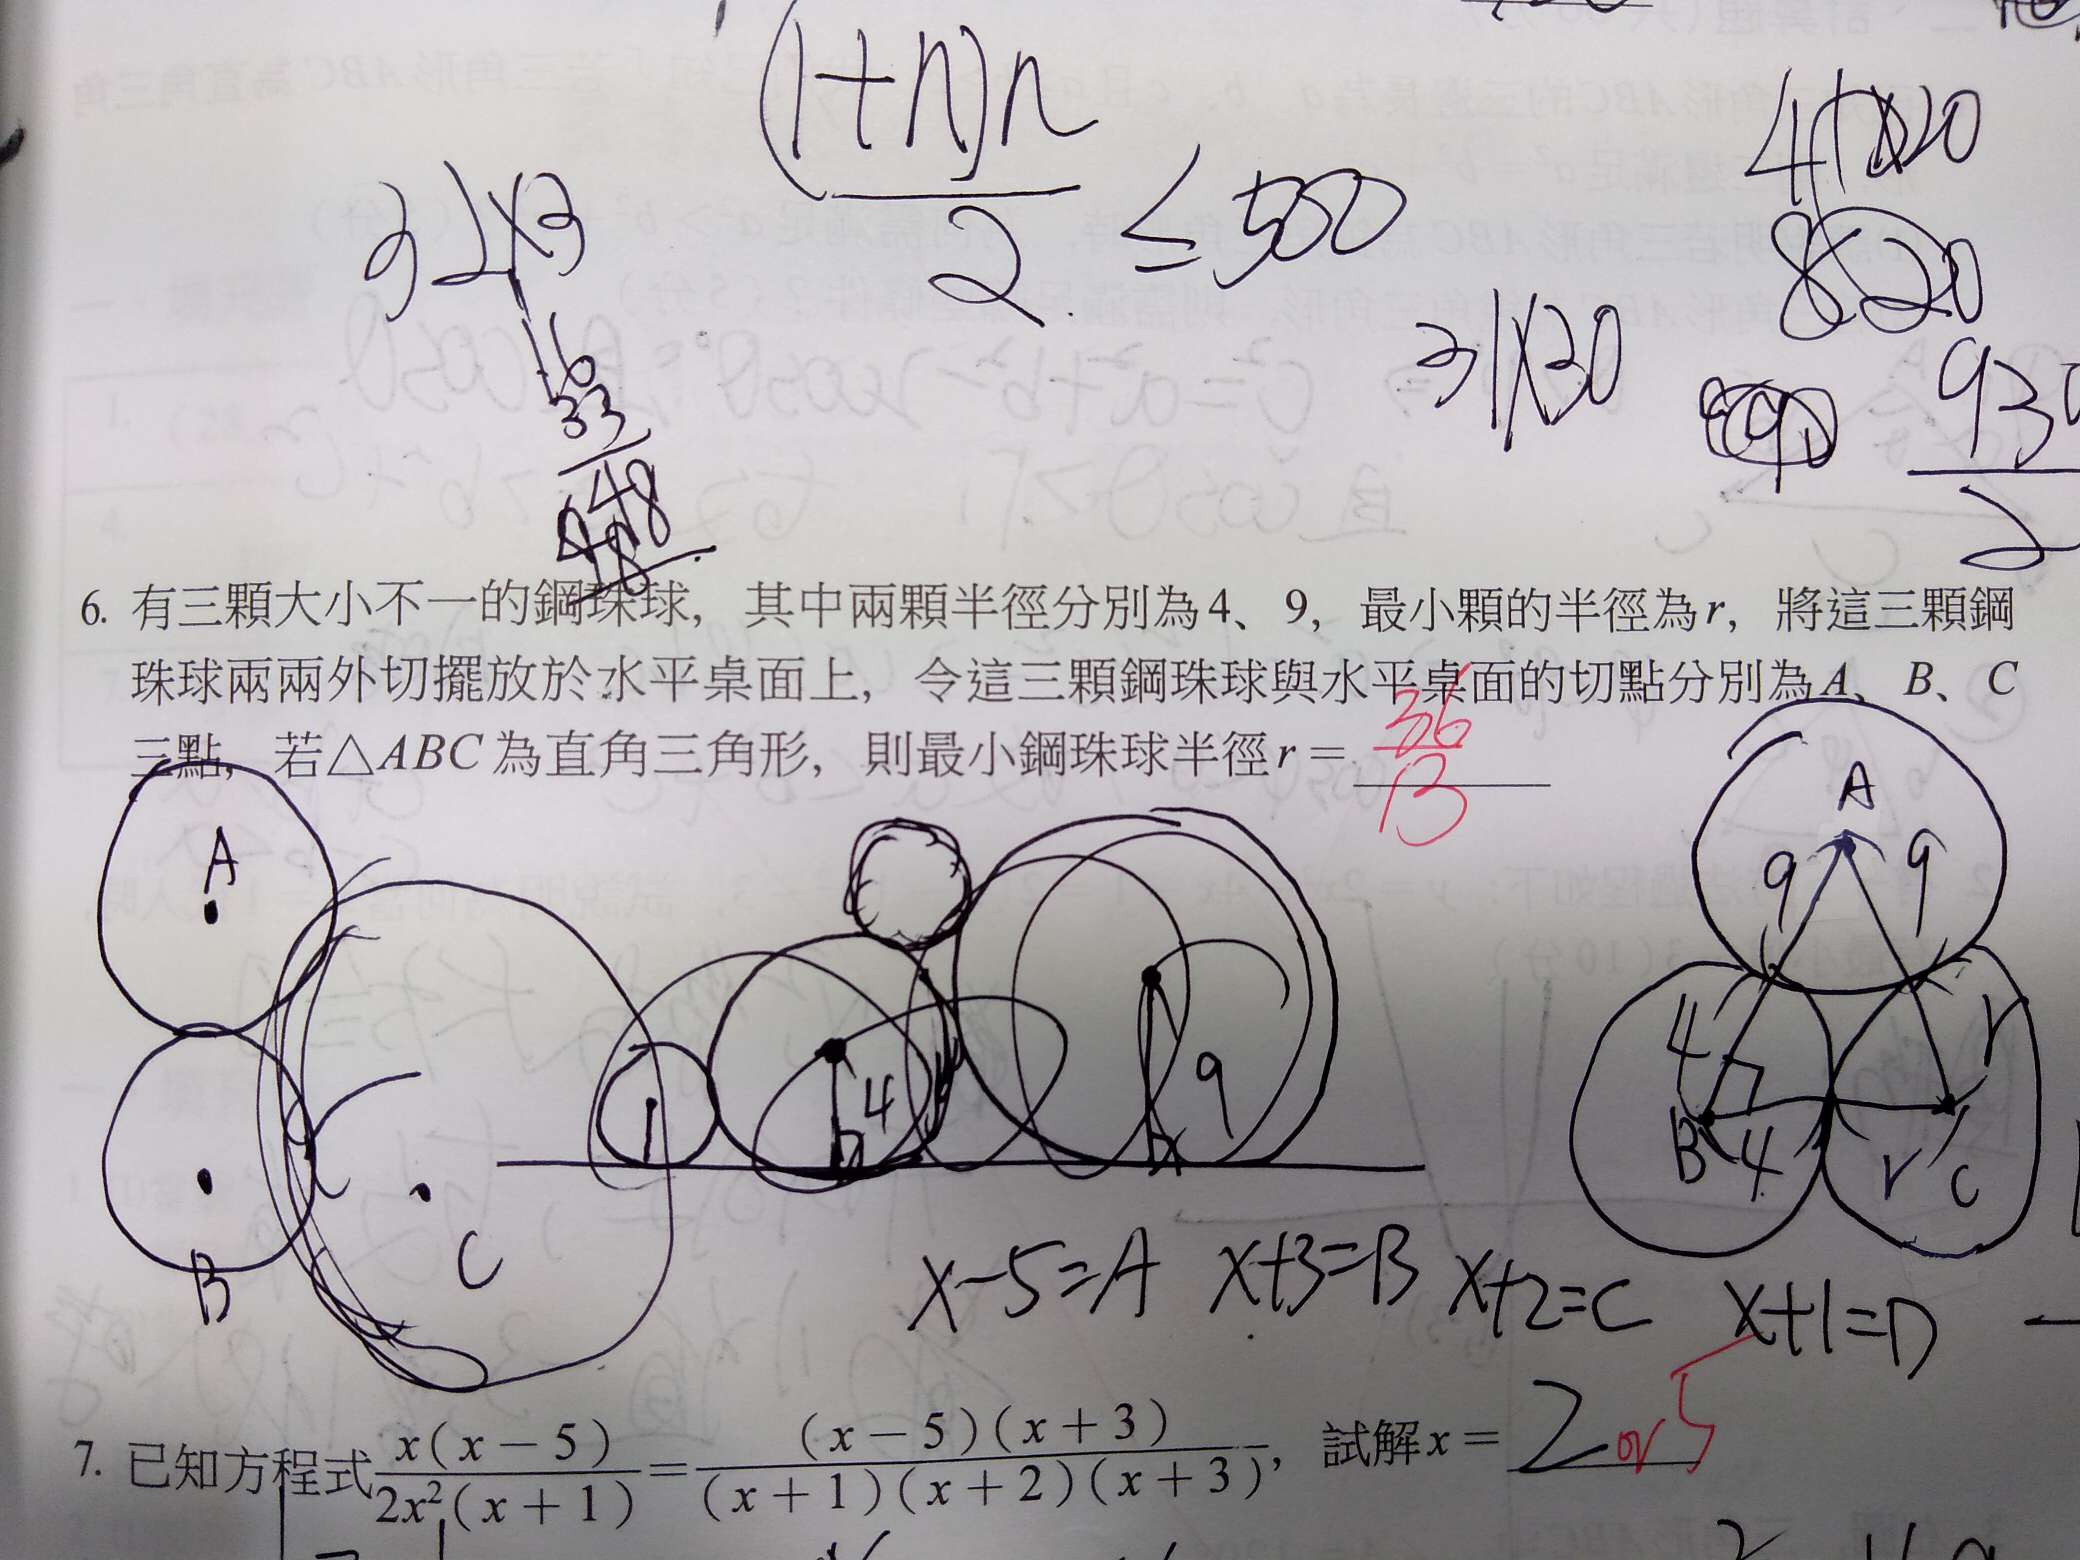 (1+n)n
2
≤500
32×3
16
33
48
48
41×20
820
31×30
930
2
6. 有三顆大小不一的鋼珠球，其中兩顆半徑分別為4、9，最小顆的半徑為r，將這三顆鋼
珠球兩兩外切擺放於水平桌面上，令這三顆鋼珠球與水平桌面的切點分別為A、B、C
三點，若△ABC為直角三角形，則最小鋼珠球半徑r＝36/13
A
B
C
4
9
A
9 9
4 r
B 4 r C
x-5=A x+3=B x+2=C x+1=D
7. 已知方程式x(x－5)/2x²(x＋1)＝(x－5)(x＋3)/(x＋1)(x＋2)(x＋3)，試解x＝2 or 5